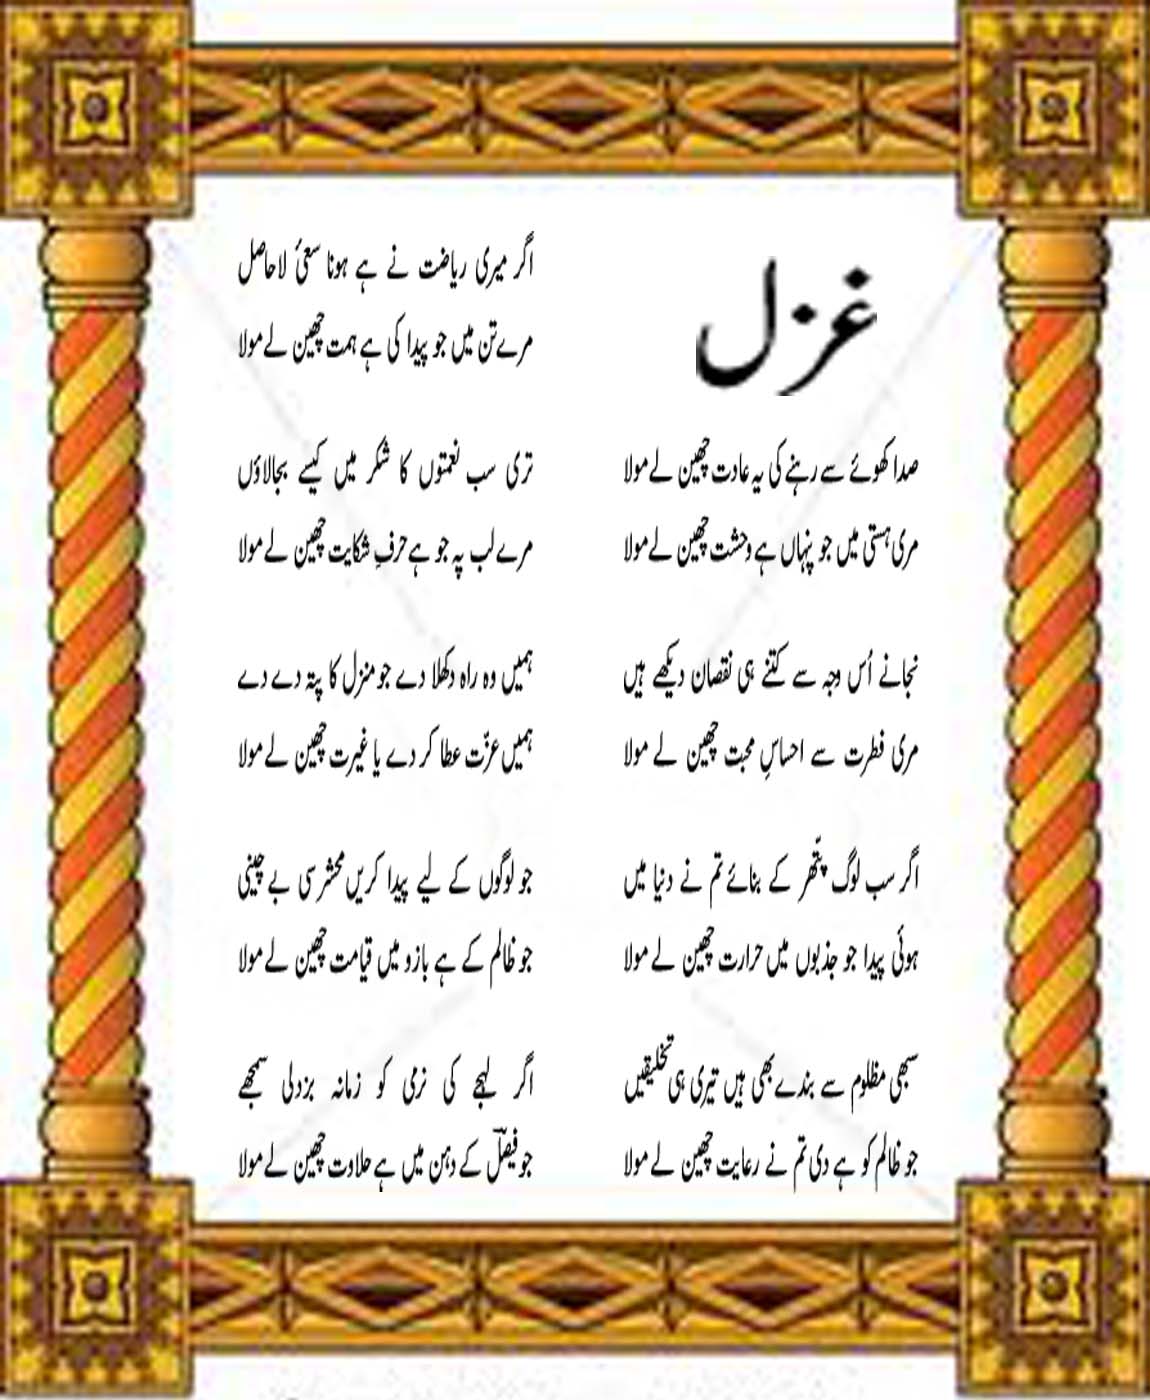 غزل
صدا کھوئے سے رہنے کی یہ عادت چھین لے مولا
مری ہستی میں جو پنہاں ہے وحشت چھین لے مولا
نجانے اُس وجہ سے کتنے ہی نقصان دیکھے ہیں
مری فطرت سے احساسِ محبت چھین لے مولا
اگر سب لوگ پتّھر کے بنائے تم نے دنیا میں
ہوئی پیدا جو جذبوں میں حرارت چھین لے مولا
سبھی مظلوم سے بندے بھی ہیں تیری ہی تخلیقیں
جو ظالم کو ہے دی تم نے رعایت چھین لے مولا
اگر میری ریاضت نے ہے ہونا سعیٔ لاحاصل
مرے تن میں جو پیدا کی ہے ہمت چھین لے مولا
تری سب نعمتوں کا شکر میں کیسے بجالاؤں
مرے لب پہ جو ہے حرفِ شکایت چھین لے مولا
ہمیں وہ راہ دکھلا دے جو منزل کا پتہ دے دے
ہمیں عزّت عطا کر دے یا غیرت چھین لے مولا
جو لوگوں کے لیے پیدا کریں محشر سی بے چینی
جو ظالم کے ہے بازو میں قیامت چھین لے مولا
اگر لہجے کی نرمی کو زمانہ بزدلی سمجھے
جو فیصلؔ کے دہن میں ہے حلاوت چھین لے مولا